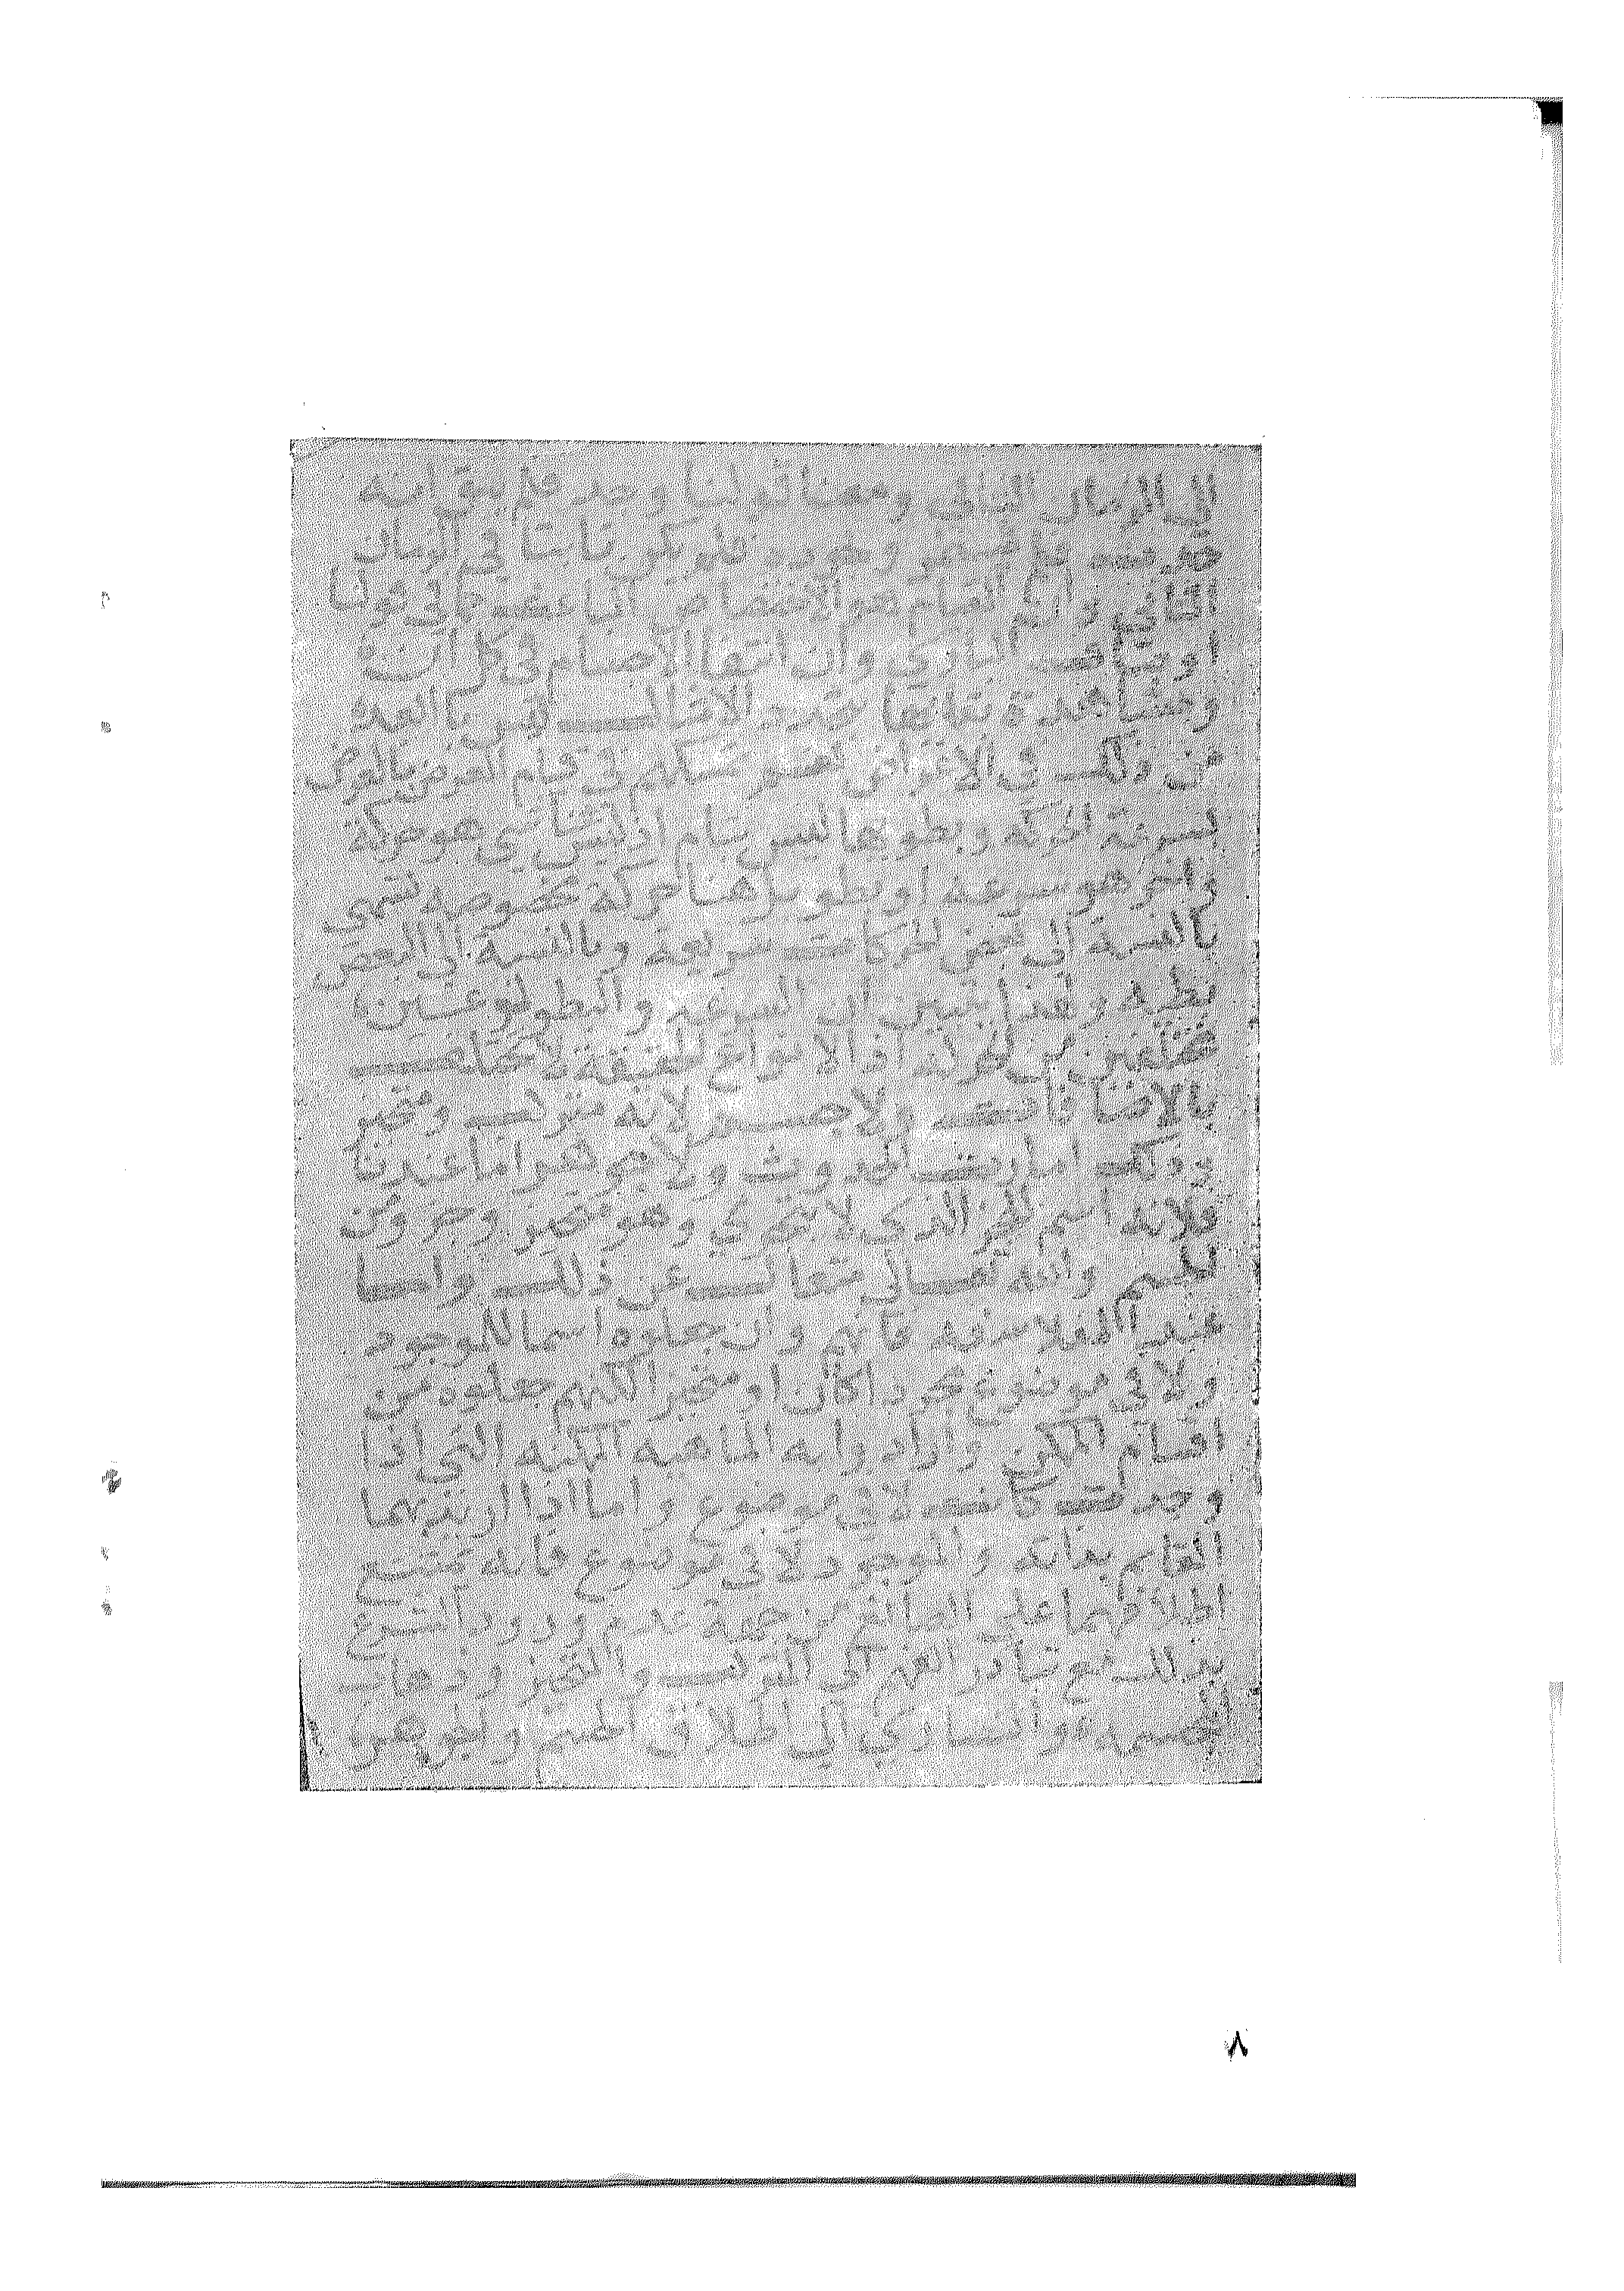 الى الزمان الثانى ومعنا قولنا وجد فلم يبق انه
حدث فلم يستمر وجوده فلم يكن ثابتا فى الزمان
الثانى وان القيام هو الاختصاص الناعت كما فى
اوصاف البارى وان انتفا الاجسام فى كل آن
ومشاهدة بقائها بتجدد الامثال ليس بابعد
من ذلك فى الاعراض نعم تمسكهم فى قيام العرض بالعرض
بسرعة الحركة وبطوها ليس بتام اذ ليس هنا شى هو حركة
واخر هو سرعة او بطو بل هنا حركة مخصوصة تسمى
بالنسبة الى بعض الحركات سريعة وبالنسبة الى البعض
بطيئة وبهذا تبين ان السرعة والبطو نوعين
مختلفين من الحركة اذ الانواع الحقيقة لا تختلف
بالاضافات ولا جسم لانه متركب ومتحيز
وذلك امارت الحدوث ولا جوهر اما عندنا
فلانه اسم للجز الذى لا يتجزى وهو متحيز وجز من
الجسم والله تعالى متعال عن ذلك واما
عند الفلاسفة فانهم وان جعلوه اسما للموجود
ولا فى موضوع مجردا كان او متحيزا لكنهم جعلوه من
اقسام الممكن وارادوا به الماهية الممكنة التى اذا
وجدت كانت لا فى موضوع واما اذا اريد بهما
القايم بذاته والموجود لا فى موضوع فانه يمتنع
اطلاقهما على الصانع من جهة عدم ورود الشرع
بذلك مع تبادر الفهم الى التركب والتحيز وذهاب
المجسمة والنصارى الى اطلاق الجسم والجوهر
٨